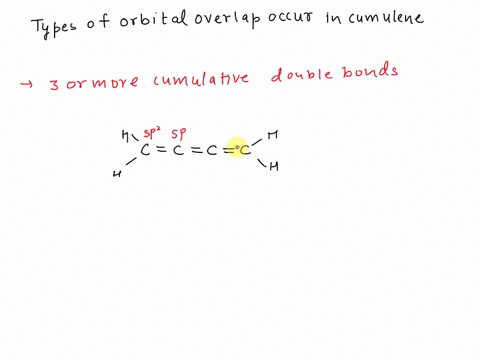 Types of orbital overlap occur in cumulene
→ 3 or more cumulative double bonds
H sp² sp H
C = C = C = C
H H